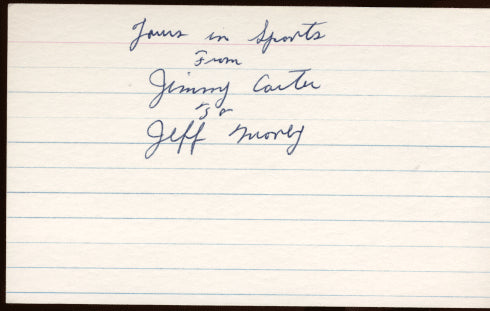 Yours in Sports
From
Jimmy Carter
To
Jeff